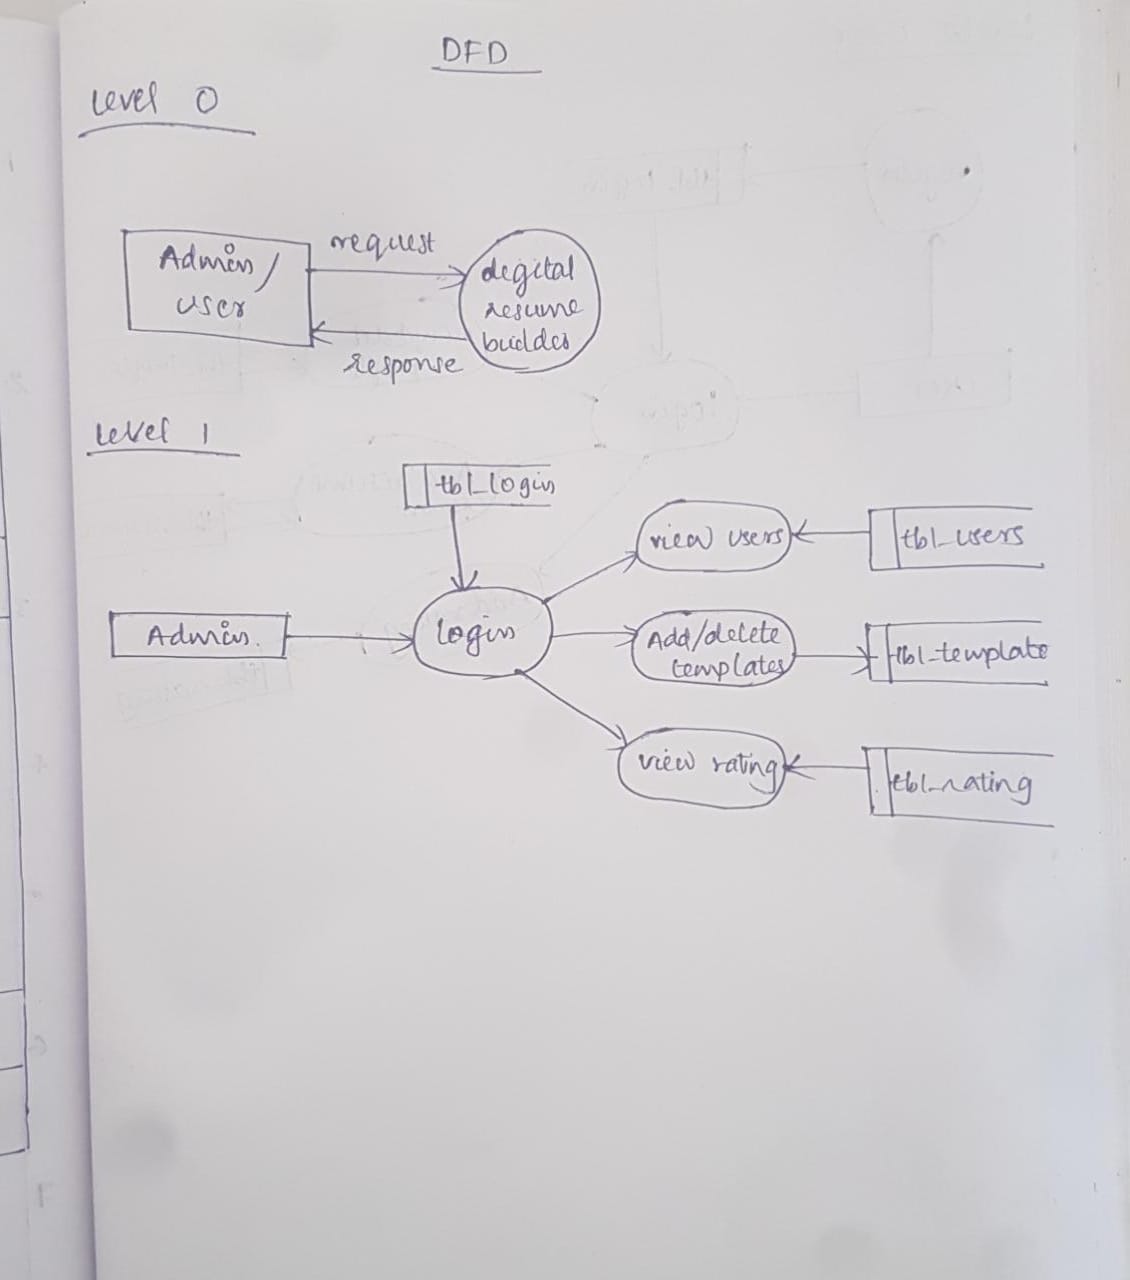 DFD
Level 0
Admin/
user
request
response
degital
resume
builder
Level 1
tbl_login
Admin
login
view users
tbl_users
Add/delete
templates
tbl_template
view rating
tbl_rating